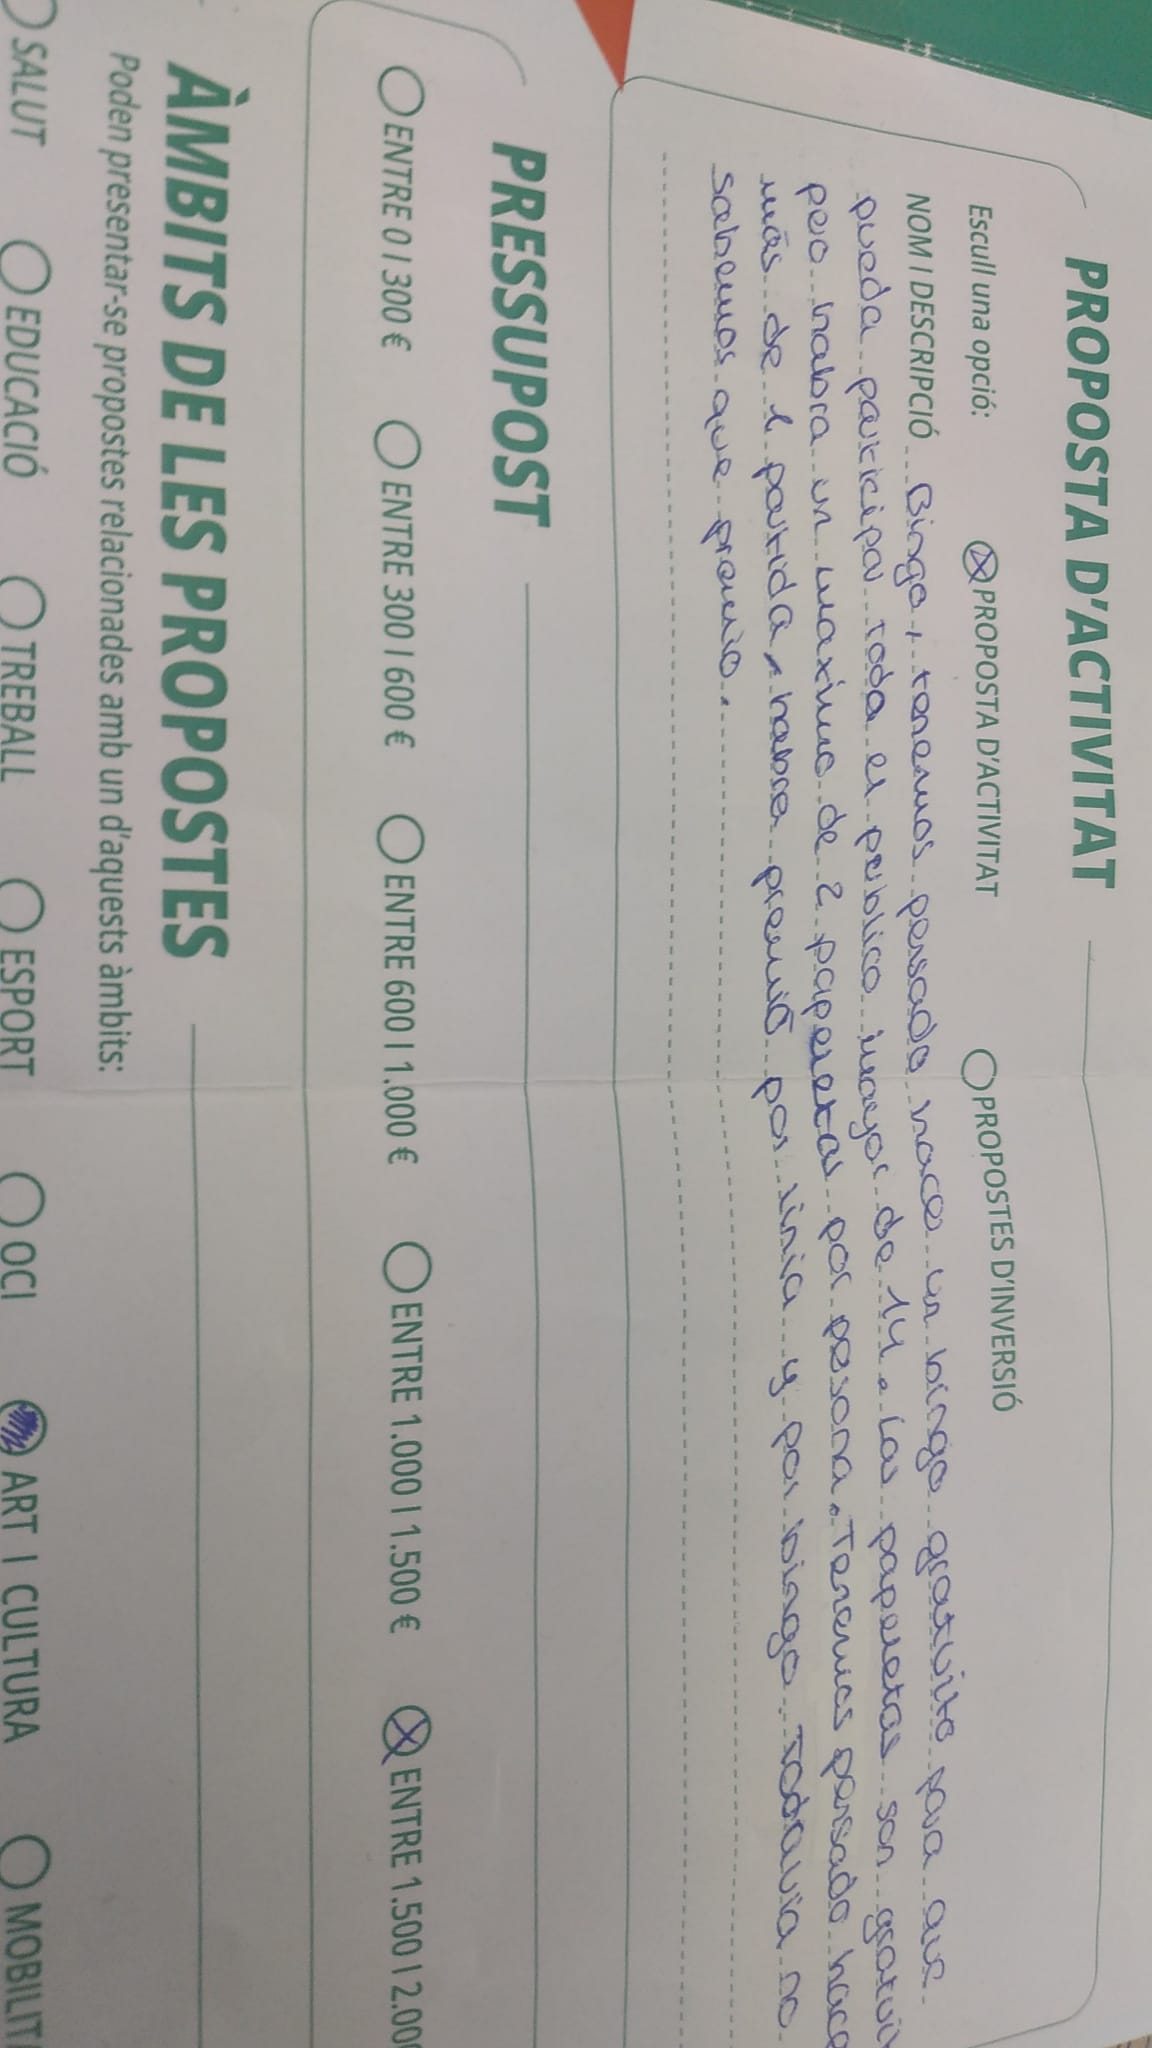 PROPOSTA D'ACTIVITAT
Escull una opció: PROPOSTA D'ACTIVITAT PROPOSTES D'INVERSIÓ
NOM I DESCRIPCIÓ Bingo, tenemos pensado hacer un bingo gratuito para que
pueda participar toda el publico mayor de 14. Las papeletas son gratuit
pero habra un maximo de 2 papeletas por pesona. Tenemos pensado hace
más de 1 partida, habra premio por linia y por bingo. Todavia no
sabemos que premio.
PRESSUPOST
ENTRE 0 I 300 € ENTRE 300 I 600 € ENTRE 600 I 1.000 € ENTRE 1.000 I 1.500 € ENTRE 1.500 I 2.00
ÀMBITS DE LES PROPOSTES
Poden presentar-se propostes relacionades amb un d'aquests àmbits:
SALUT EDUCACIÓ TREBALL ESPORT OCI ART I CULTURA MOBILIT